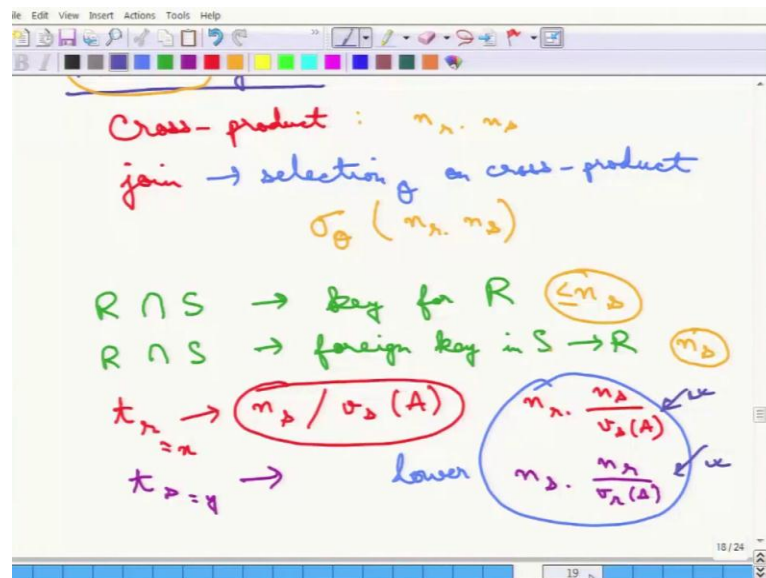 File Edit View Insert Actions Tools Help
B I
Cross-product : n_r . n_s
join → selection_θ on cross-product
σ_θ ( n_r . n_s )
R ∩ S → key for R ≤ n_s
R ∩ S → foreign key in S → R n_s
t_r = x → n_s / v_s (A) n_r . n_s / v_s(A)
t_s = y → Lower n_s . n_r / v_r(A)
18/24
19